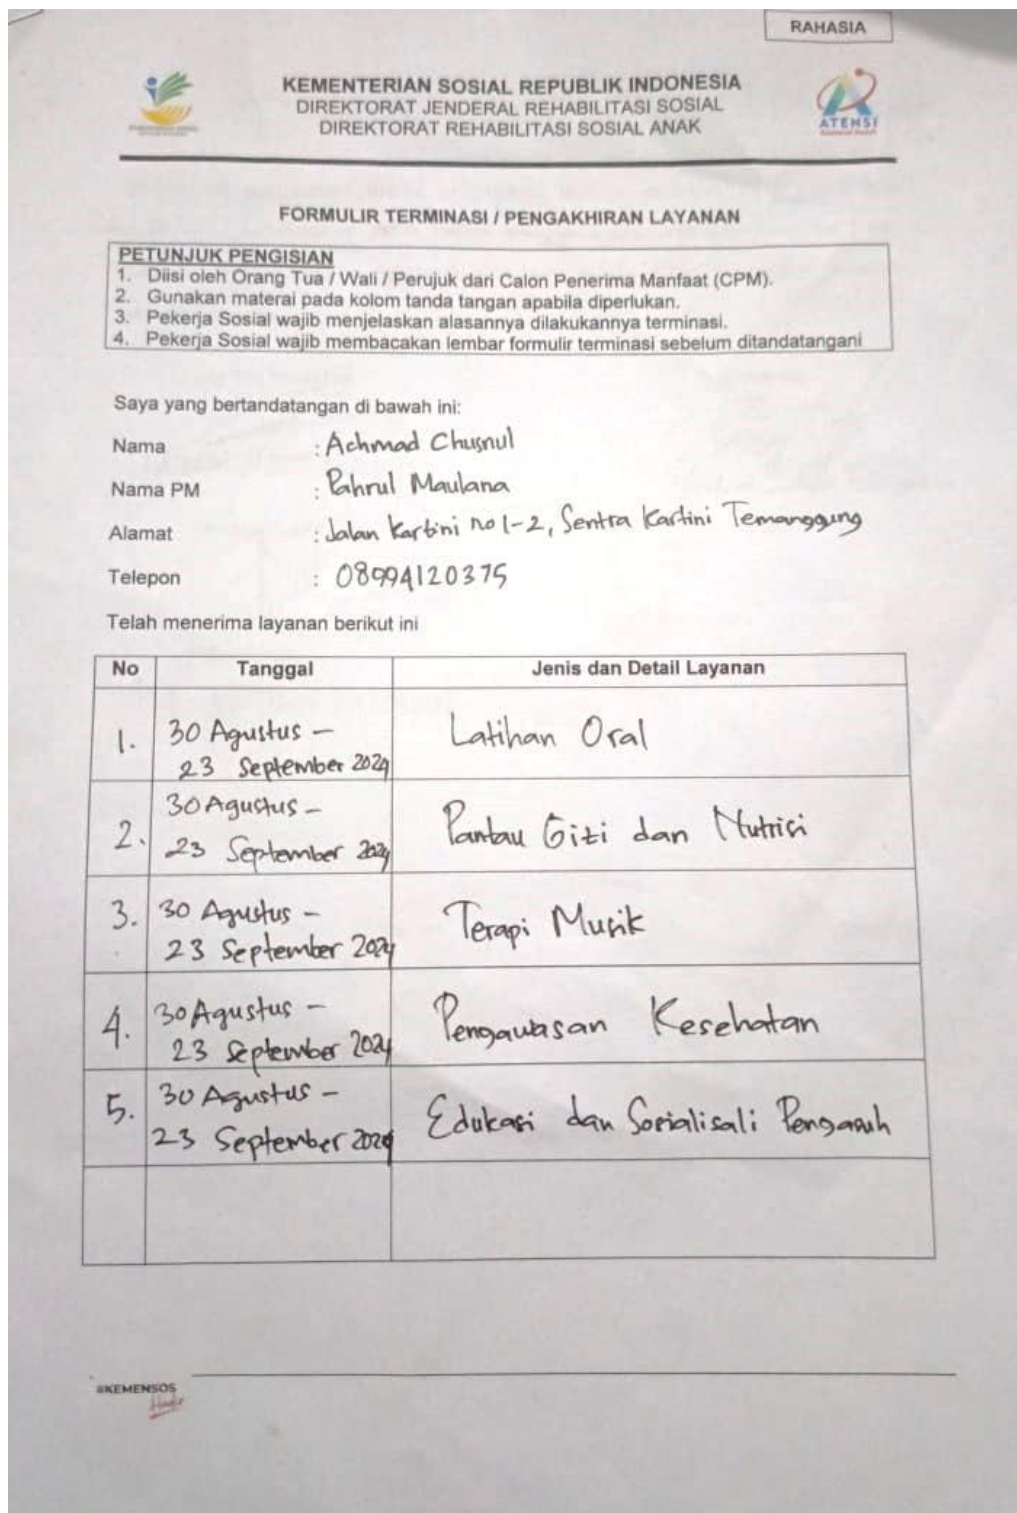 RAHASIA
KEMENTERIAN SOSIAL REPUBLIK INDONESIA
DIREKTORAT JENDERAL REHABILITASI SOSIAL
DIREKTORAT REHABILITASI SOSIAL ANAK
ATENSI
FORMULIR TERMINASI / PENGAKHIRAN LAYANAN
PETUNJUK PENGISIAN
1. Diisi oleh Orang Tua / Wali / Perujuk dari Calon Penerima Manfaat (CPM).
2. Gunakan materai pada kolom tanda tangan apabila diperlukan.
3. Pekerja Sosial wajib menjelaskan alasannya dilakukannya terminasi.
4. Pekerja Sosial wajib membacakan lembar formulir terminasi sebelum ditandatangani
Saya yang bertandatangan di bawah ini:
Nama : Achmad Chusnul
Nama PM : Pahrul Maulana
Alamat : Jalan Kartini no 1-2, Sentra Kartini Temanggung
Telepon : 08994120375
Telah menerima layanan berikut ini
No Tanggal Jenis dan Detail Layanan
1. 30 Agustus - Latihan Oral
23 September 2024
2. 30 Agustus - Pantau Gizi dan Nutrisi
23 September 2024
3. 30 Agustus - Terapi Musik
23 September 2024
4. 30 Agustus - Pengawasan Kesehatan
23 September 2024
5. 30 Agustus - Edukasi dan Sosialisali Pengasuh
23 September 2024
#KEMENSOS
Hadir